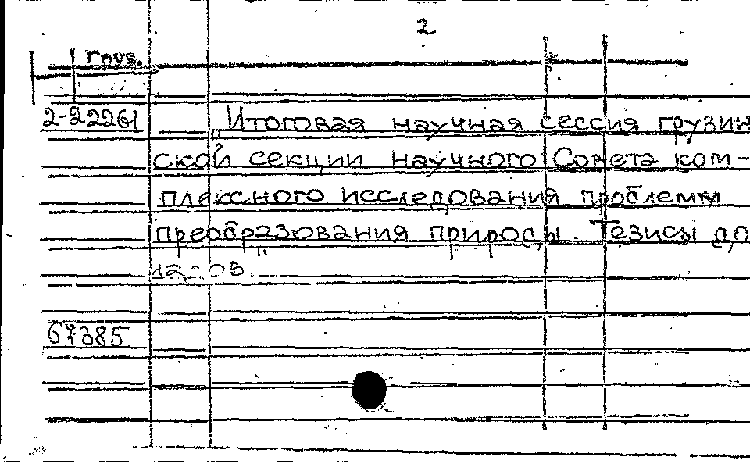 2
груз.
2-22261 „Итоговая научная сессия грузин
ской секции научного Совета ком-
плексного исследования проблемы
преобразования природы. Тезисы до
кладов"
67385